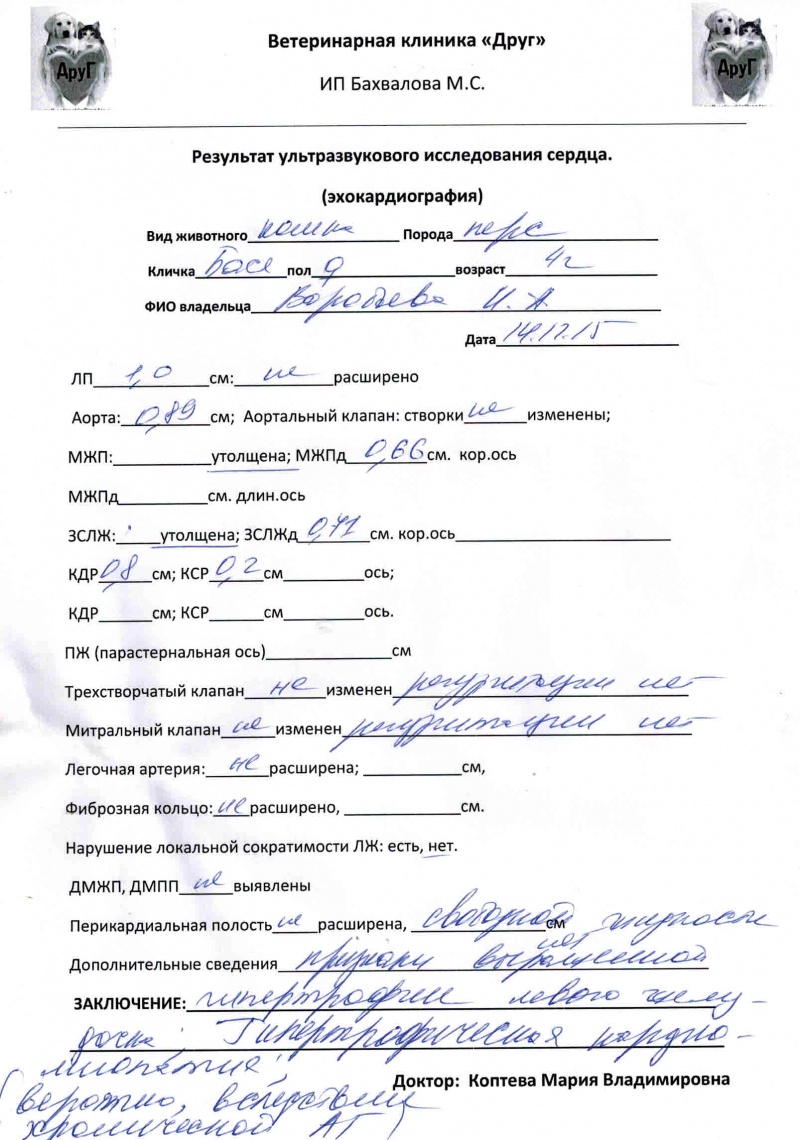 ДруГ
Ветеринарная клиника «Друг»
ДруГ
ИП Бахвалова М.С.
Результат ультразвукового исследования сердца.
(эхокардиография)
Вид животного кошка Порода перс
Кличка Бася пол ♀ возраст 4г
ФИО владельца Воробьева И. А.
Дата 14.12.15
ЛП 1,0 см: не расширено
Аорта: 0,89 см; Аортальный клапан: створки не изменены;
МЖП: утолщена; МЖПд 0,66 см. кор.ось
МЖПд см. длин.ось
ЗСЛЖ: утолщена; ЗСЛЖд 0,71 см. кор.ось
КДР 0,8 см; КСР 0,2 см ось;
КДР см; КСР см ось.
ПЖ (парастернальная ось) см
Трехстворчатый клапан не изменен регургитации нет
Митральный клапан не изменен регургитации нет
Легочная артерия: не расширена; см,
Фиброзная кольцо: не расширено, см.
Нарушение локальной сократимости ЛЖ: есть, нет.
ДМЖП, ДМПП не выявлены
Перикардиальная полость не расширена, свободной см жидкости
нет
Дополнительные сведения признаки выраженной
ЗАКЛЮЧЕНИЕ: гипертрофии левого желу-
дочка. Гипертрофическая кардио-
миопатия,
Доктор: Коптева Мария Владимировна
(вероятно, вследствие
хронической АГ)